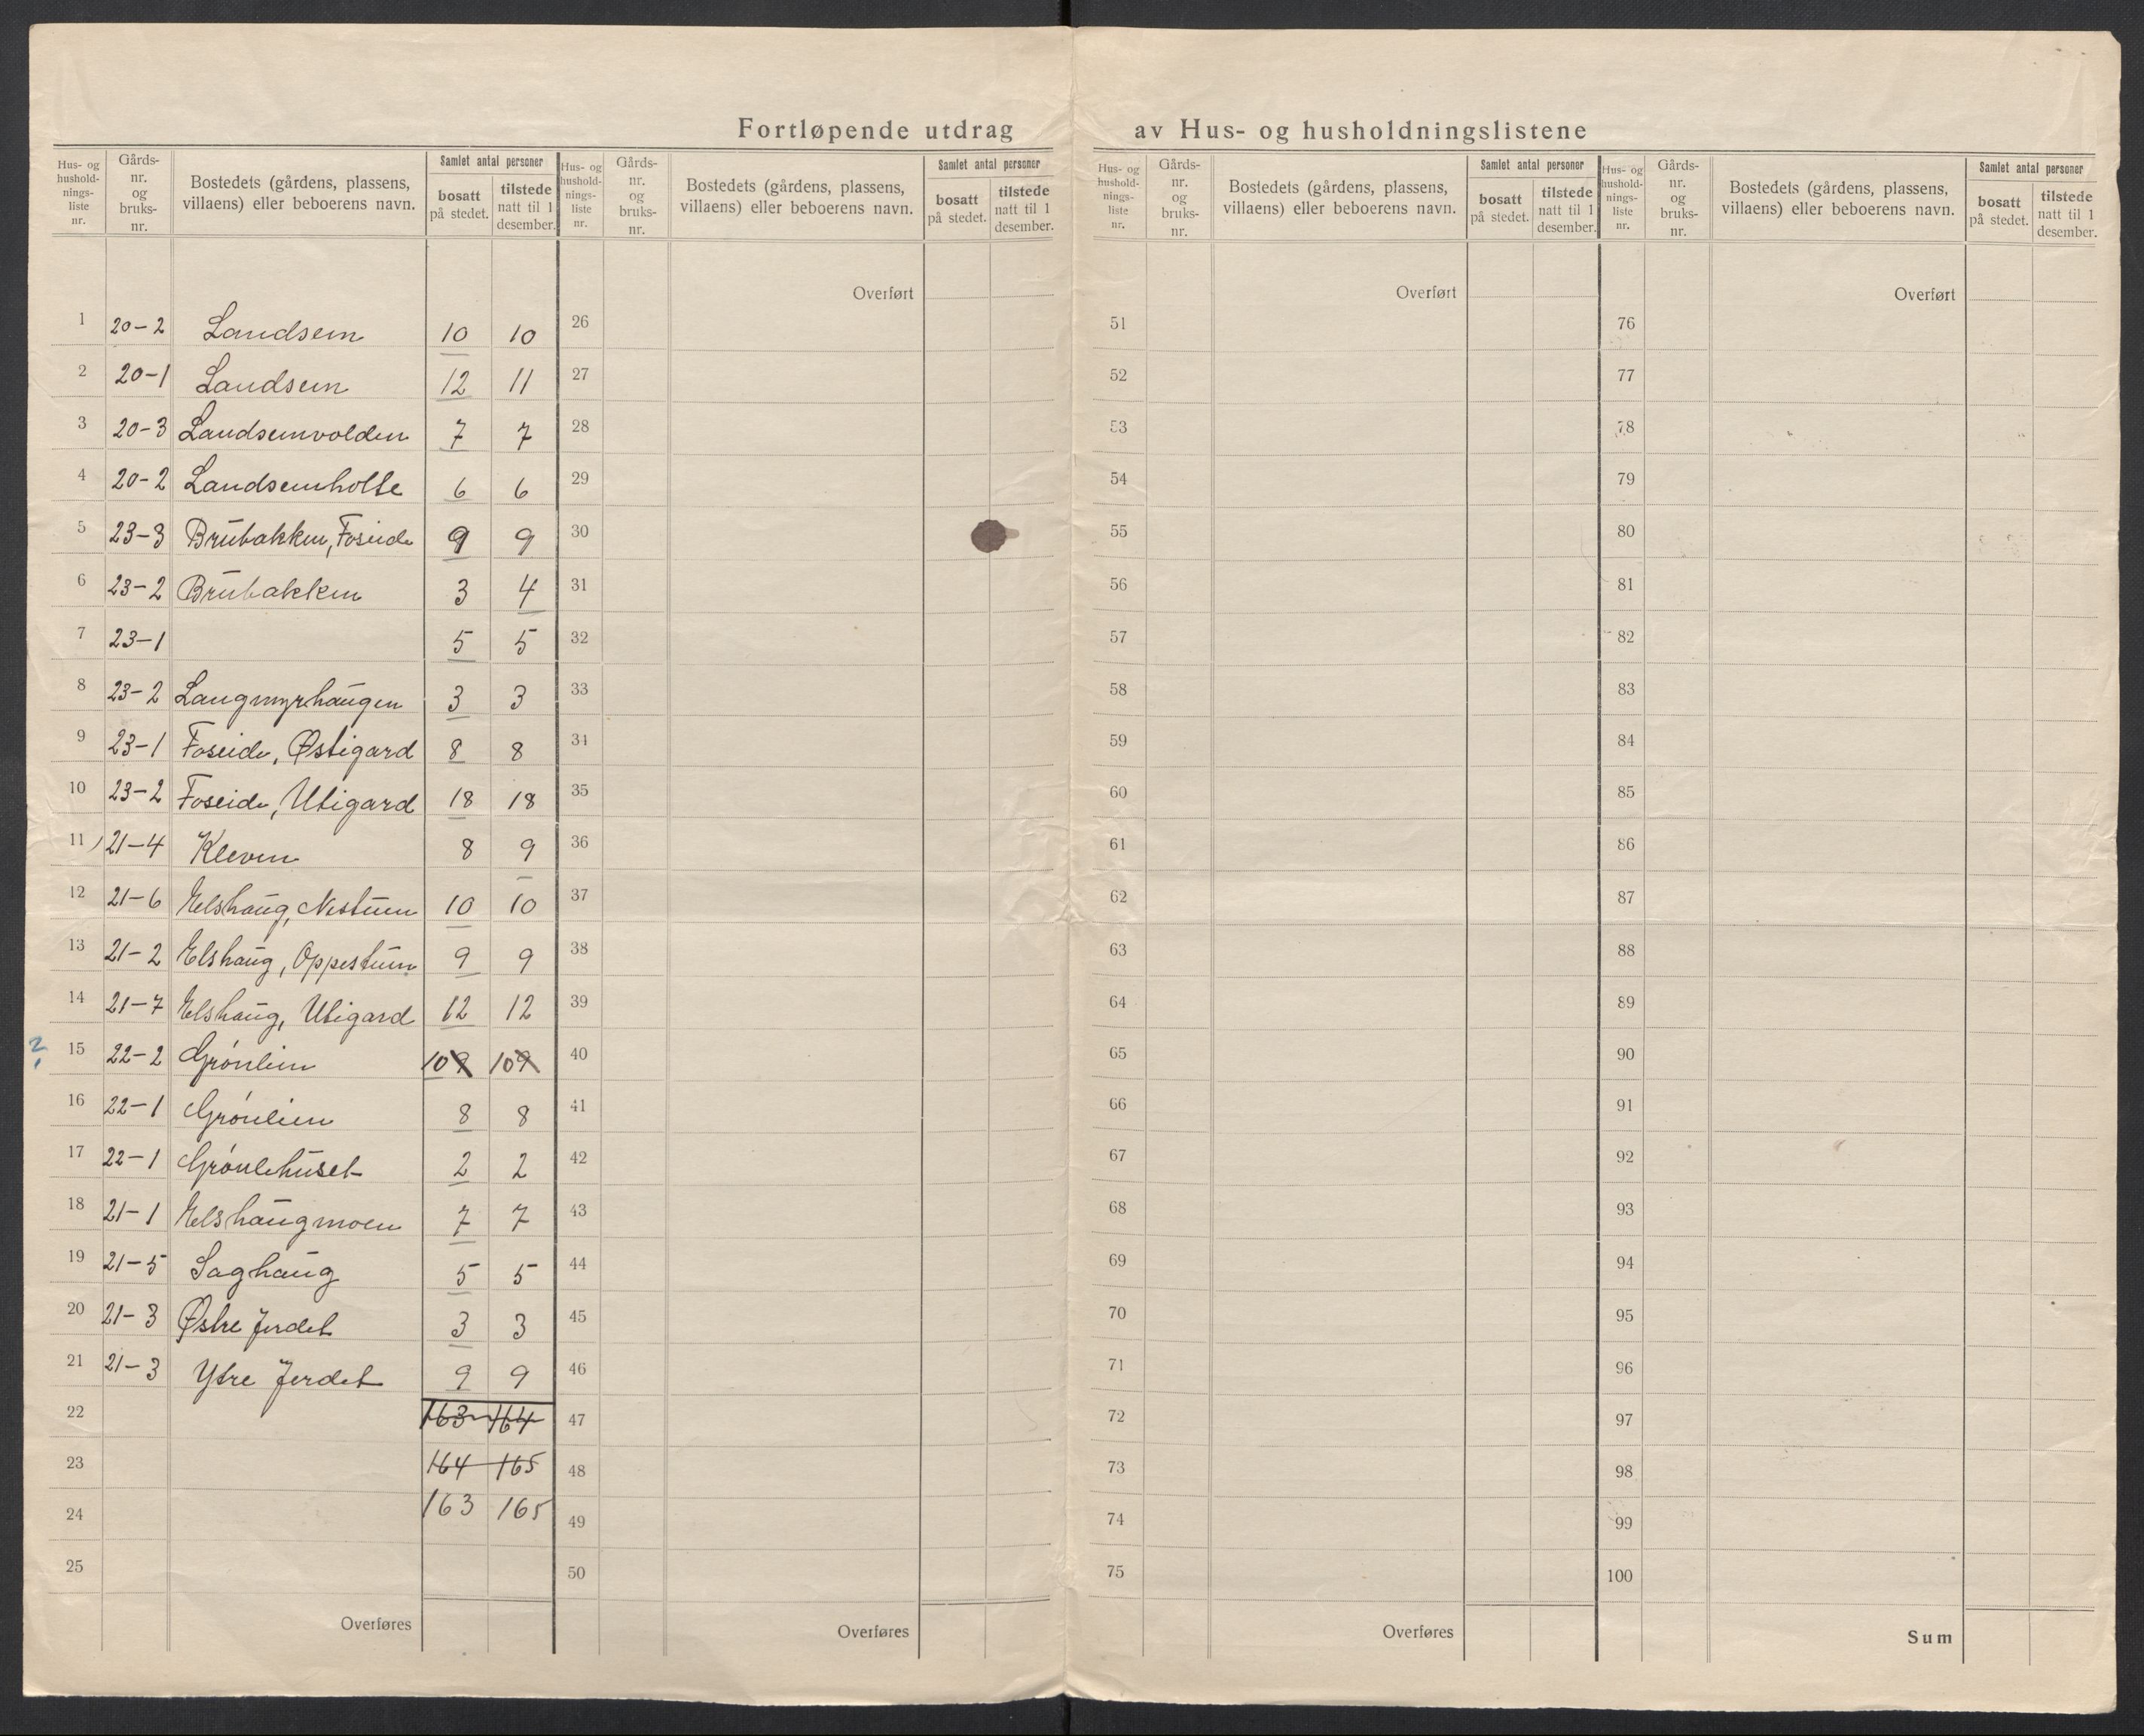 Fortløpende utdrag av Hus- og husholdningslistene
Hus- og hushold-nings-liste nr. Gårds-nr. og bruks-nr. Bostedets (gårdens, plassens, villaens) eller beboerens navn. Samlet antal personer bosatt på stedet. tilstede natt til 1 desember.
Hus- og hushold-nings-liste nr. Gårds-nr. og bruks-nr. Bostedets (gårdens, plassens, villaens) eller beboerens navn. Samlet antal personer bosatt på stedet. tilstede natt til 1 desember.
Hus- og hushold-nings-liste nr. Gårds-nr. og bruks-nr. Bostedets (gårdens, plassens, villaens) eller beboerens navn. Samlet antal personer bosatt på stedet. tilstede natt til 1 desember.
Hus- og hushold-nings-liste nr. Gårds-nr. og bruks-nr. Bostedets (gårdens, plassens, villaens) eller beboerens navn. Samlet antal personer bosatt på stedet. tilstede natt til 1 desember.
Overført Overført Overført
1 20-2 Landsem 10 10 26 51 76
2 20-1 Landsem 12 11 27 52 77
3 20-3 Landsemvolden 7 7 28 53 78
4 20-2 Landsemholte 6 6 29 54 79
5 23-3 Brubakken, Foseide 9 9 30 55 80
6 23-2 Brubakken 3 4 31 56 81
7 23-1 5 5 32 57 82
8 23-2 Langmyrhaugen 3 3 33 58 83
9 23-1 Foseide, Østigard 8 8 34 59 84
10 23-2 Foseide, Utigard 18 18 35 60 85
11) 21-4 Kleven 8 9 36 61 86
12 21-6 Elshaug, Nestuen 10 10 37 62 87
13 21-2 Elshaug, Oppestuen 9 9 38 63 88
14 21-7 Elshaug, Utigard 12 12 39 64 89
? 15 22-2 Grönlien 10 9 10 9 40 65 90
16 22-1 Grönlien 8 8 41 66 91
17 22-1 Grönlehuset 2 2 42 67 92
18 21-1 Elshaugmoen 7 7 43 68 93
19 21-5 Saghaug 5 5 44 69 94
20 21-3 Østre Jerdet 3 3 45 70 95
21 21-3 Ytre Jerdet 9 9 46 71 96
22 163 164 47 72 97
23 164 165 48 73 98
24 163 165 49 74 99
25 50 75 100
Overføres Overføres Overføres Sum